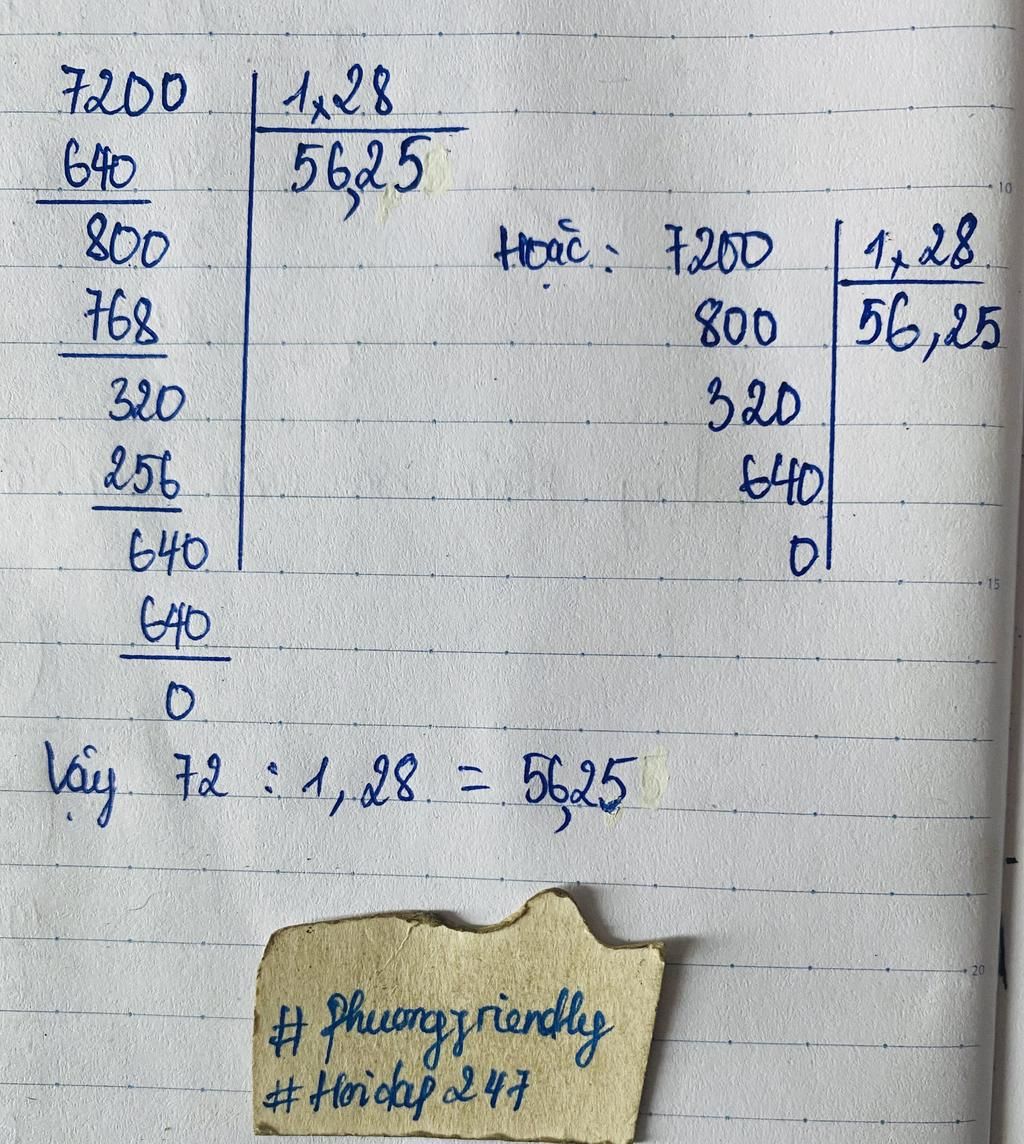 7200 1,28
640 56,25
800
768
320
256
640
640
0
Hoặc: 7200 1,28
800 56,25
320
640
0
Vậy 72 : 1,28 = 56,25
# phuongfriendly
# Hoidap247
10
15
20